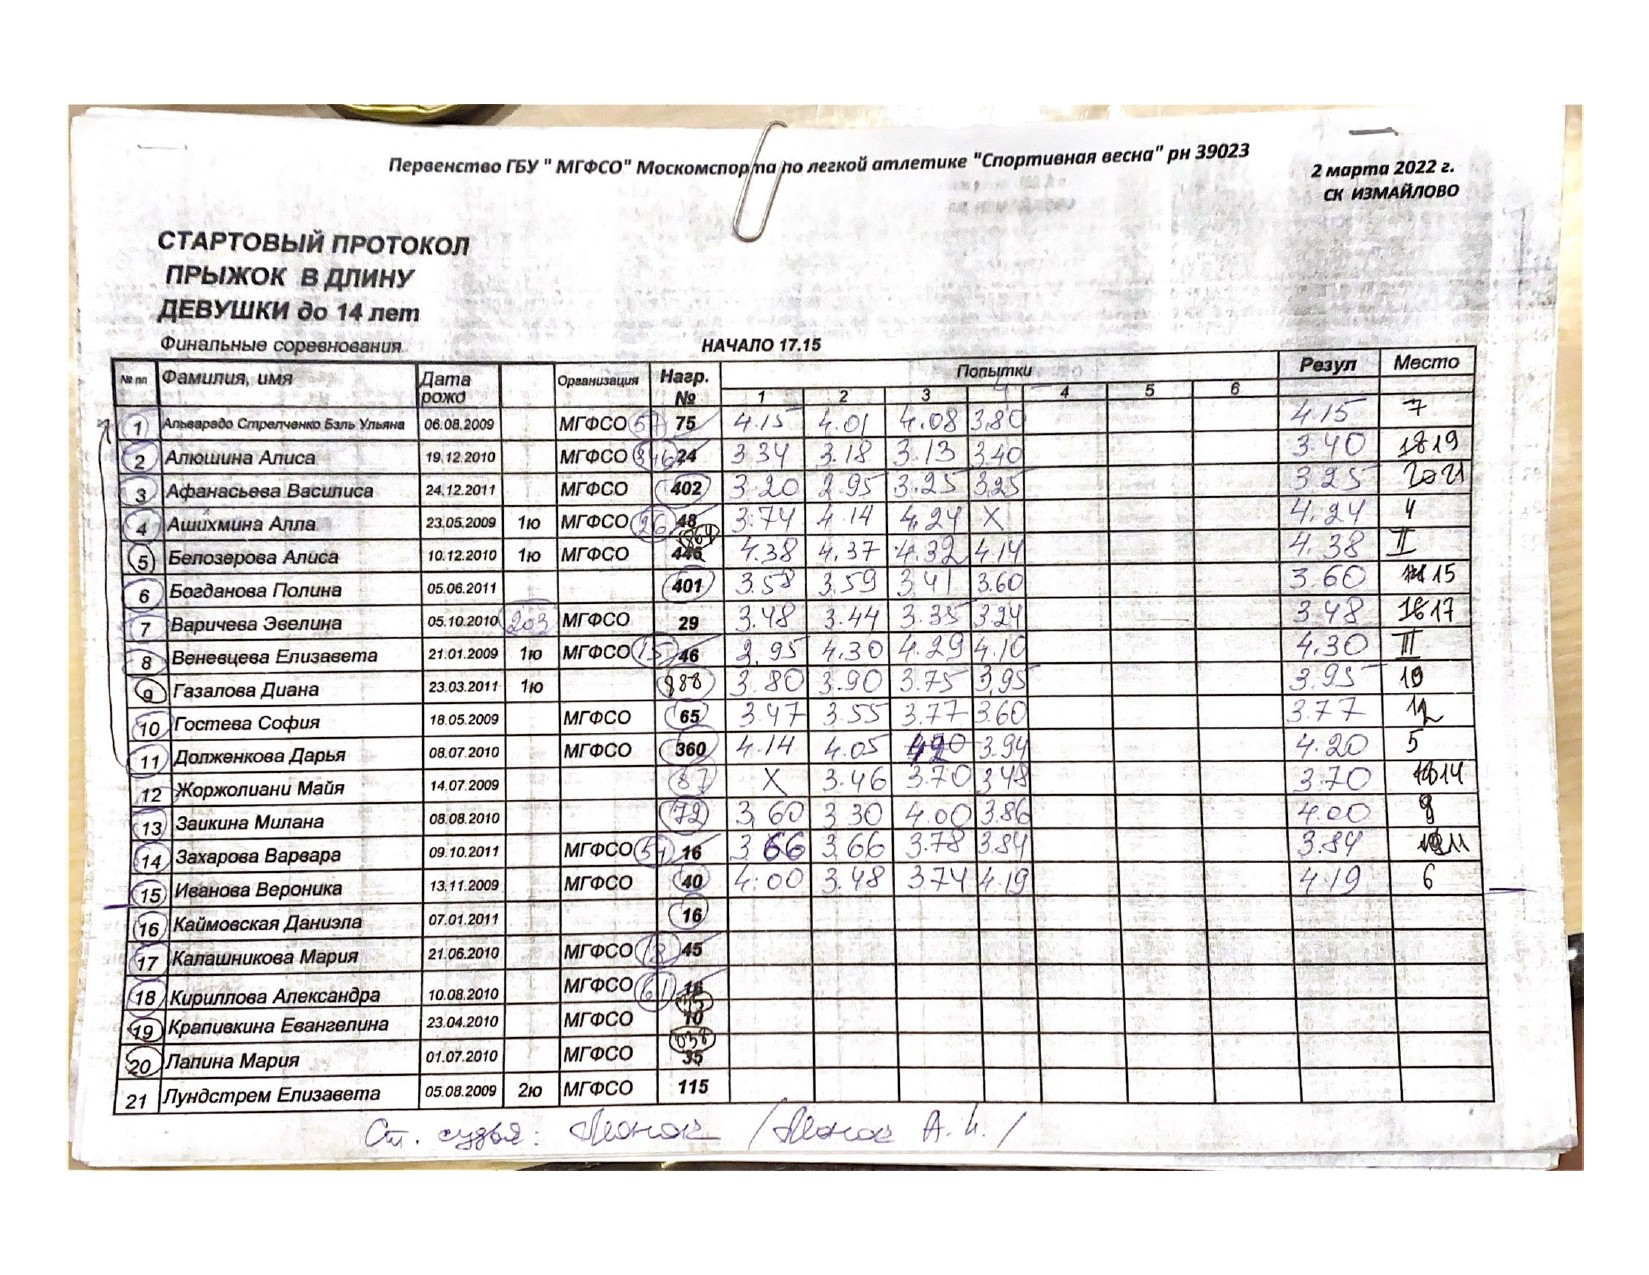 Первенство ГБУ " МГФСО" Москомспорта по легкой атлетике "Спортивная весна" рн 39023
2 марта 2022 г.
СК ИЗМАЙЛОВО
СТАРТОВЫЙ ПРОТОКОЛ
ПРЫЖОК В ДЛИНУ
ДЕВУШКИ до 14 лет
Финальные соревнования НАЧАЛО 17.15
№ пп Фамилия, имя Дата рожд Организация Нагр. № Попытки Резул Место
1 2 3 4 5 6
1 Альварадо Стрелченко Бэль Ульяна 06.08.2009 МГФСО 57 75 4.15 4.01 4.08 3.80 4.15 7
2 Алюшина Алиса 19.12.2010 МГФСО 24 3.34 3.18 3.13 3.40 3.40 19
3 Афанасьева Василиса 24.12.2011 МГФСО 402 3.20 2.95 3.25 3.25 3.25 21
4 Ашихмина Алла 23.05.2009 1ю МГФСО 26 48 3.74 4.14 4.24 X 4.24 4
5 Белозерова Алиса 10.12.2010 1ю МГФСО 4.38 4.37 4.32 4.14 4.38 II
6 Богданова Полина 05.06.2011 401 3.58 3.59 3.41 3.60 3.60 15
7 Варичева Эвелина 05.10.2010 203 МГФСО 29 3.48 3.44 3.35 3.24 3.48 17
8 Веневцева Елизавета 21.01.2009 1ю МГФСО 46 2.95 4.30 4.29 4.10 4.30 III
9 Газалова Диана 23.03.2011 1ю 888 3.80 3.90 3.75 3.95 3.95 10
10 Гостева София 18.05.2009 МГФСО 65 3.47 3.55 3.77 3.60 3.77 12
11 Долженкова Дарья 08.07.2010 МГФСО 360 4.14 4.05 4.20 3.94 4.20 5
12 Жоржолиани Майя 14.07.2009 87 X 3.46 3.70 3.48 3.70 14
13 Заикина Милана 08.08.2010 72 3.60 3.30 4.00 3.86 4.00 9
14 Захарова Варвара 09.10.2011 МГФСО 54 16 3.66 3.66 3.78 3.84 3.84 11
15 Иванова Вероника 13.11.2009 МГФСО 40 4.00 3.48 3.74 4.19 4.19 6
16 Каймовская Даниэла 07.01.2011 16
17 Калашникова Мария 21.06.2010 МГФСО 12 45
18 Кириллова Александра 10.08.2010 МГФСО 61 16
19 Крапивкина Евангелина 23.04.2010 МГФСО 10
20 Лапина Мария 01.07.2010 МГФСО 35
21 Лундстрем Елизавета 05.08.2009 2ю МГФСО 115
Ст. судья: